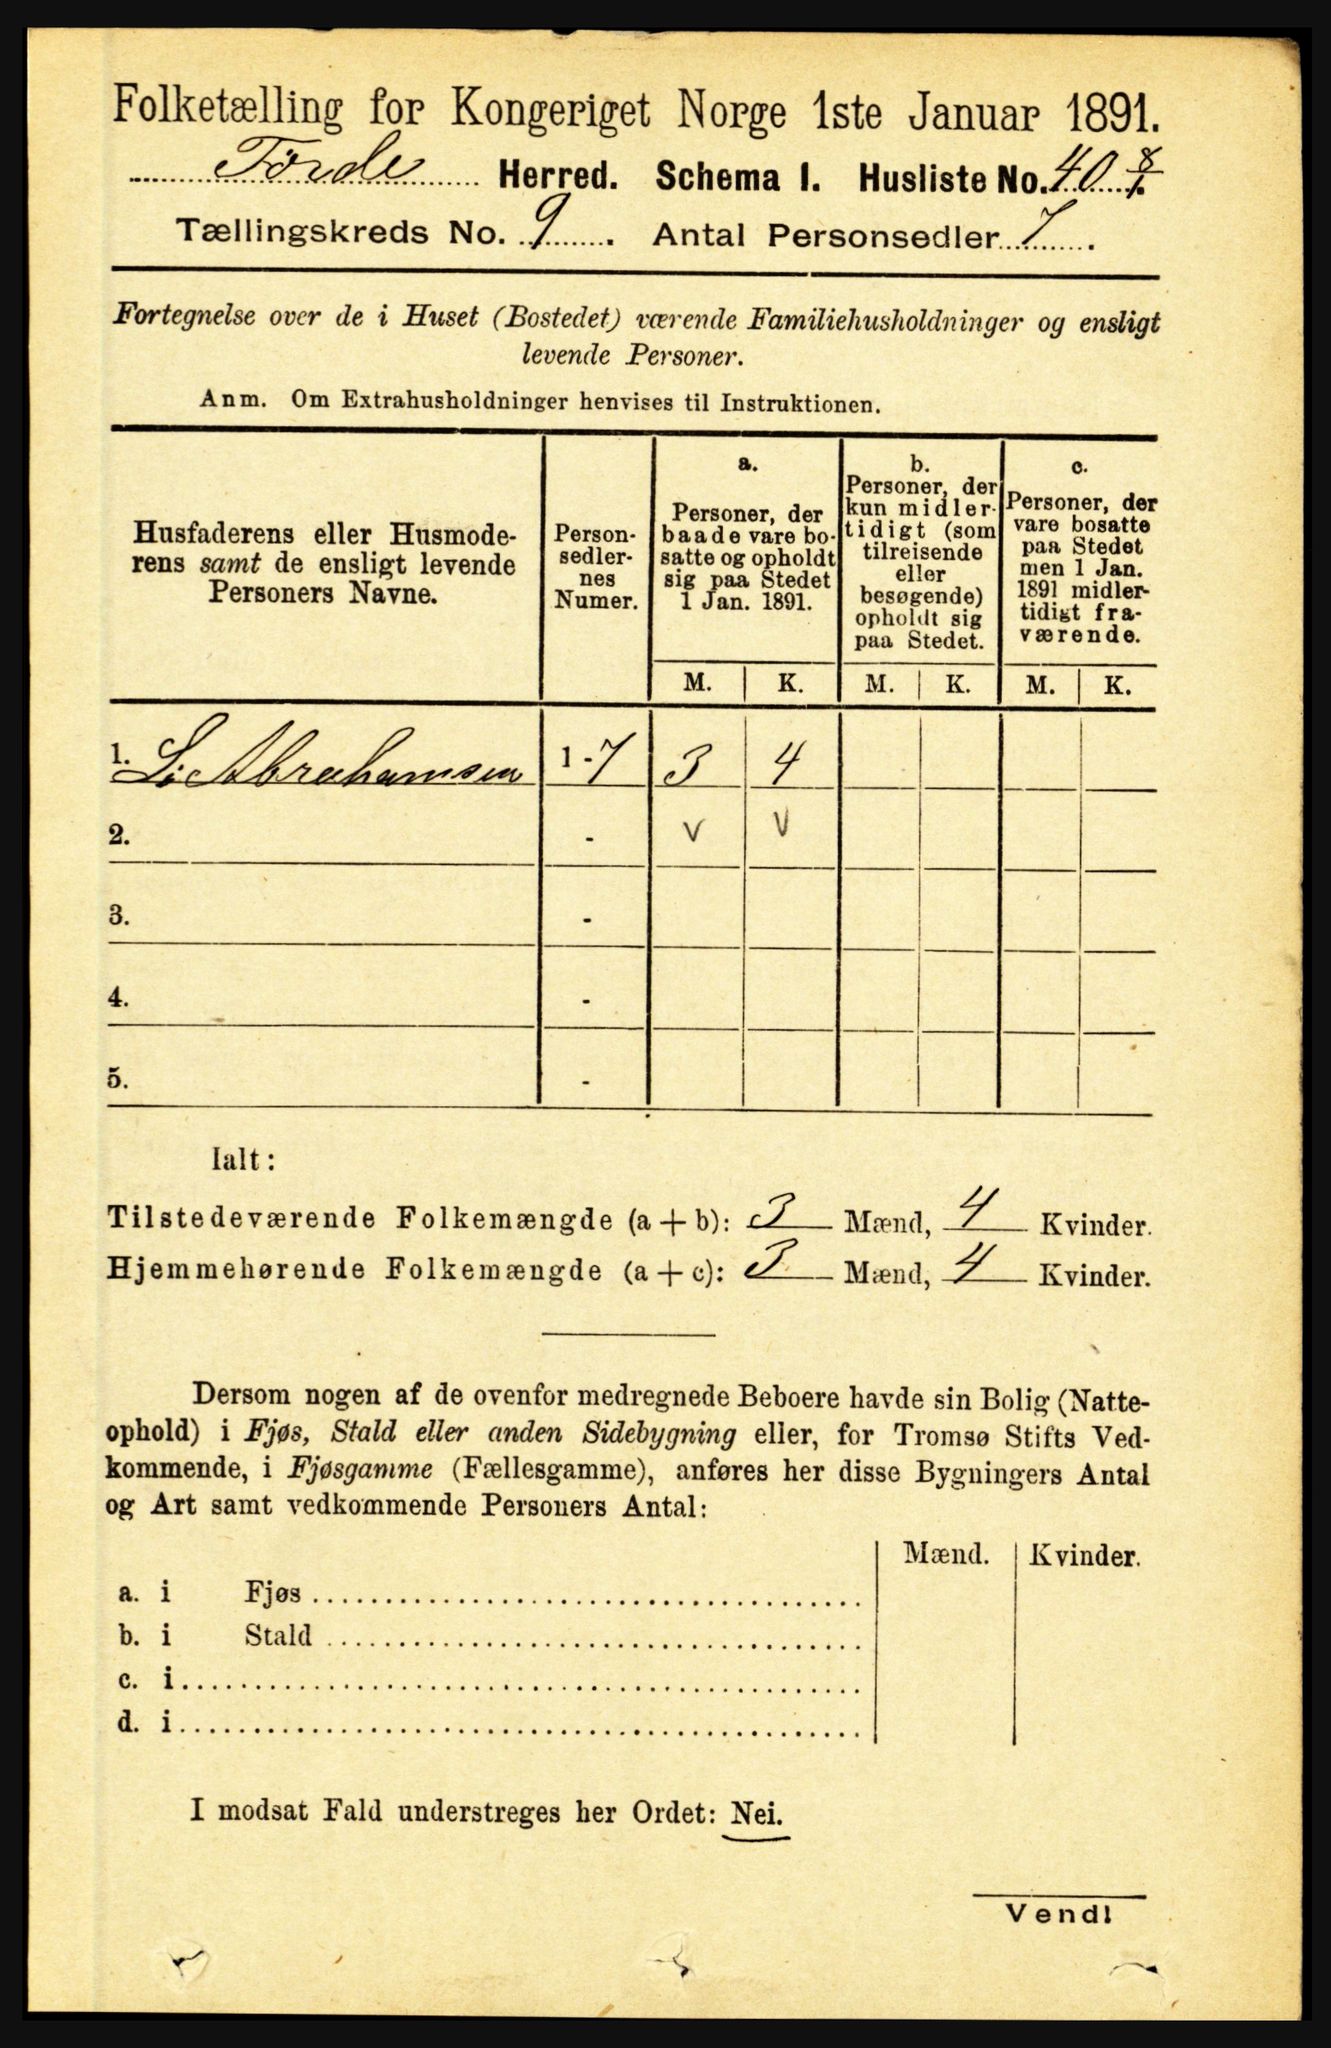 Folketælling for Kongeriget Norge 1ste Januar 1891.
Førde Herred. Schema I. Husliste No. 40 8/1.
Tællingskreds No. 9. Antal Personsedler 7.
Fortegnelse over de i Huset (Bostedet) værende Familiehusholdninger og ensligt
levende Personer.
Anm. Om Extrahusholdninger henvises til Instruktionen.
Husfaderens eller Husmode-
rens samt de ensligt levende
Personers Navne.
Person-
sedler-
nes
Numer.
a.
Personer, der
baade vare bo-
satte og opholdt
sig paa Stedet
1 Jan. 1891.
b.
Personer, der
kun midler-
tidigt (som
tilreisende
eller
besøgende)
opholdt sig
paa Stedet.
c.
Personer, der
vare bosatte
paa Stedet
men 1 Jan.
1891 midler-
tidigt fra-
værende.
M. K. M. K. M. K.
1. L. Abrahamsen 1 - 7 3 4
2. - v v
3. -
4. -
5. -
Ialt:
Tilstedeværende Folkemængde (a + b): 3 Mænd, 4 Kvinder.
Hjemmehørende Folkemængde (a + c): 3 Mænd, 4 Kvinder.
Dersom nogen af de ovenfor medregnede Beboere havde sin Bolig (Natte-
ophold) i Fjøs, Stald eller anden Sidebygning eller, for Tromsø Stifts Ved-
kommende, i Fjøsgamme (Fællesgamme), anføres her disse Bygningers Antal
og Art samt vedkommende Personers Antal:
Mænd. Kvinder.
a. i Fjøs
b. i Stald
c. i
d. i
I modsat Fald understreges her Ordet: Nei.
Vend!